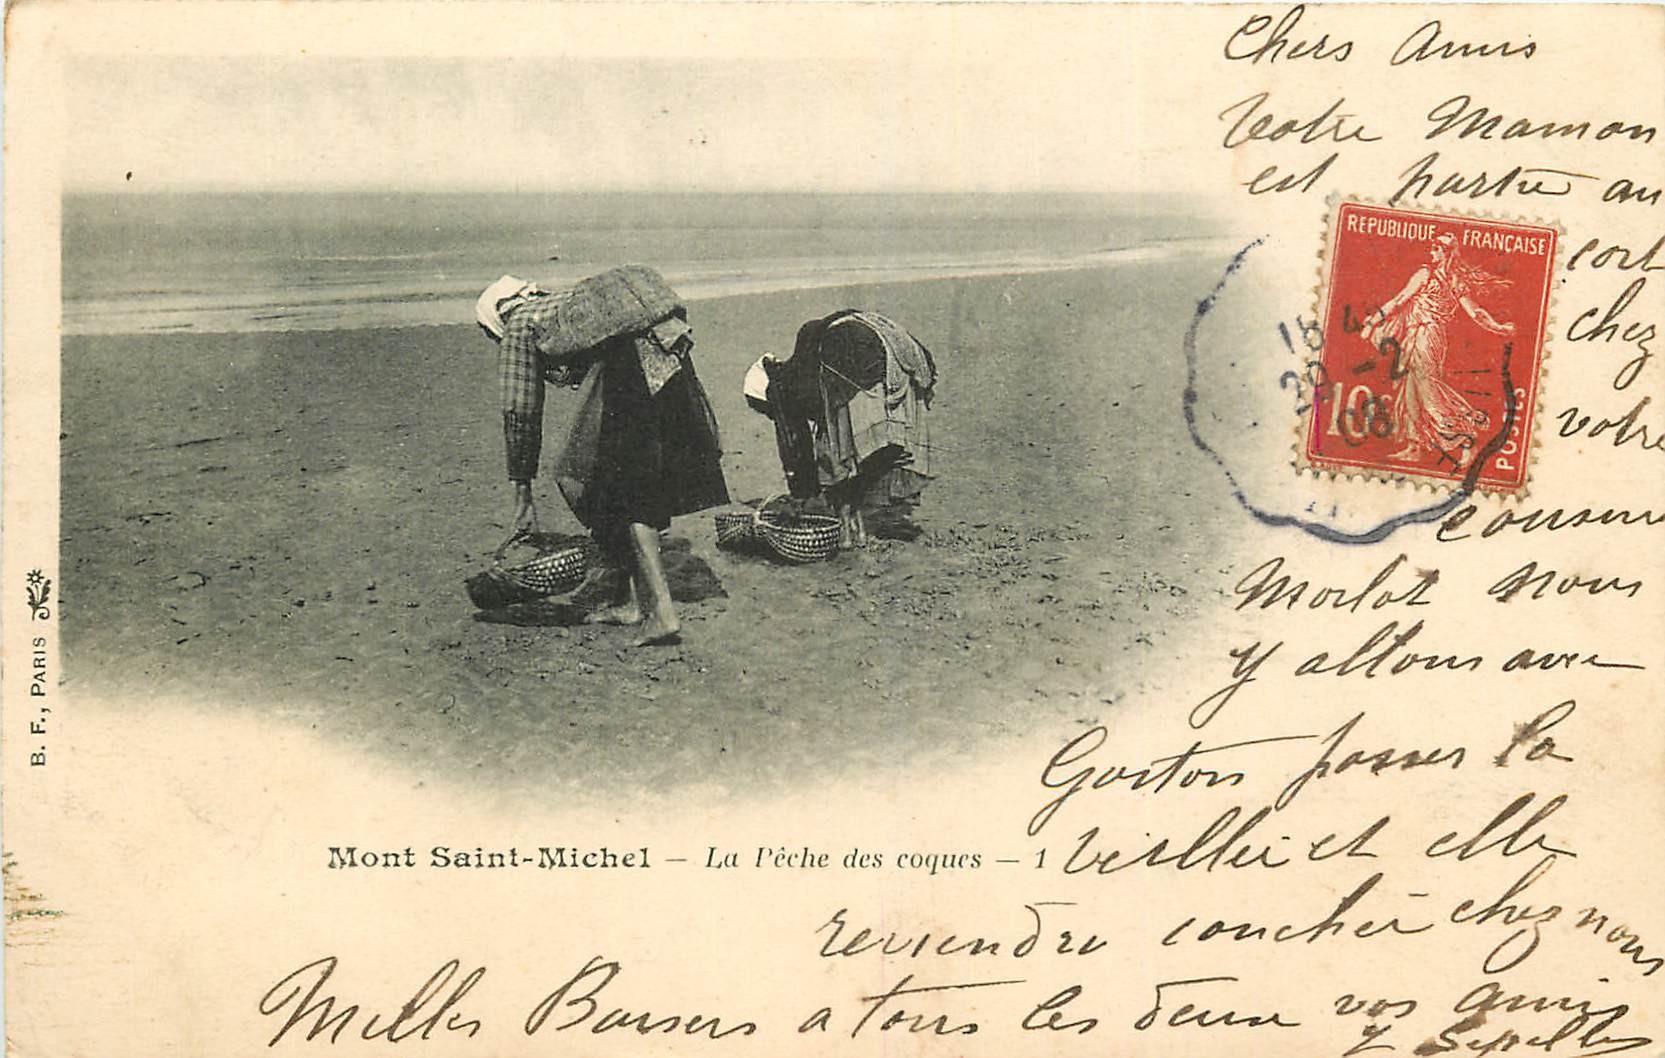 Chers Amis
Votre Maman
est partie au
cort
chez
votre
cousine
Morlot nous
y allons avec
Gaston passer la
veillée et elle
reviendra coucher chez nous
Milles Baisers a tous les deux vos amis
REPUBLIQUE FRANÇAISE
10c
POSTES
18 4
20 -2
08
Mont Saint-Michel — La Pêche des coques — 1
B. F., PARIS